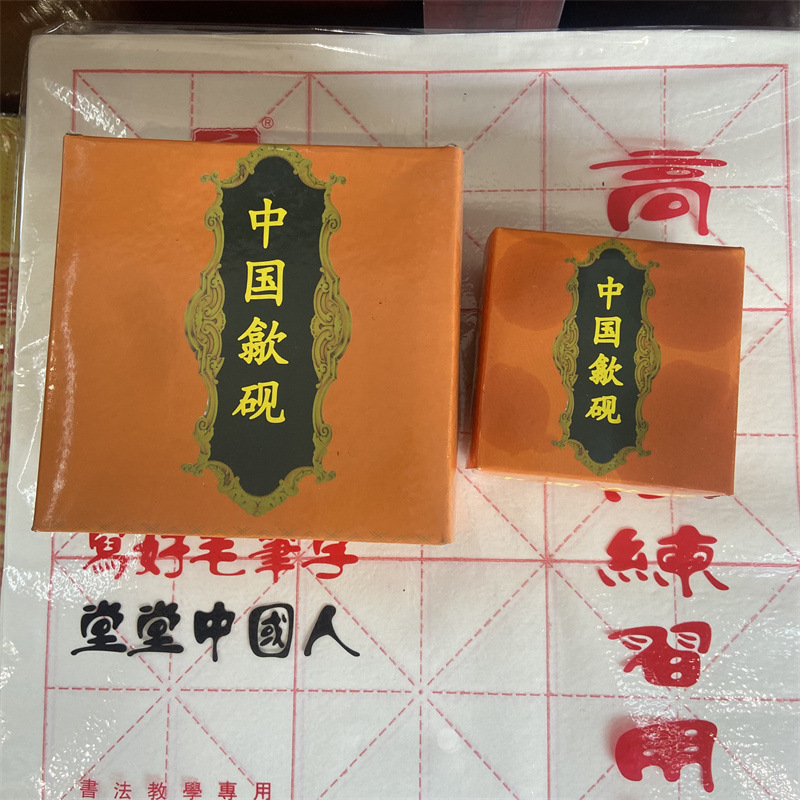 中国歙砚
中国歙砚
高
練習用
寫好毛筆字
堂堂中國人
書法教學專用
®